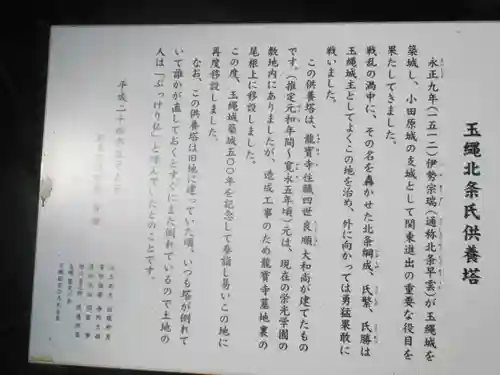 玉縄北条氏供養塔
永正九年(一五一二)伊勢宗瑞(通称北条早雲)が玉縄城を
築城し、小田原城の支城として関東進出の重要な役目を
果たしてきました。
戦乱の渦中に、その名を轟かせた北条綱成、氏繁、氏勝は
玉縄城主としてよくこの地を治め、外に向かっては勇猛果敢に
戦いました。
この供養塔は、龍寶寺住職四世良順大和尚が建てたもの
です。(推定元和年間~寛永五年頃)元は、現在の栄光学園の
敷地内にありましたが、造成工事のため龍寶寺墓地裏の
尾根上に移設しました。
この度、玉縄城築城五〇〇年を記念して参詣し易いこの地に
再度移設しました。
なお、この供養塔は旧地に建っていた頃、いつも塔が倒れて
いて誰かが直しておくとすぐにまた倒れているので土地の
人は「ぶっけり仏」と呼んでいたとのことです。
平成二十四年